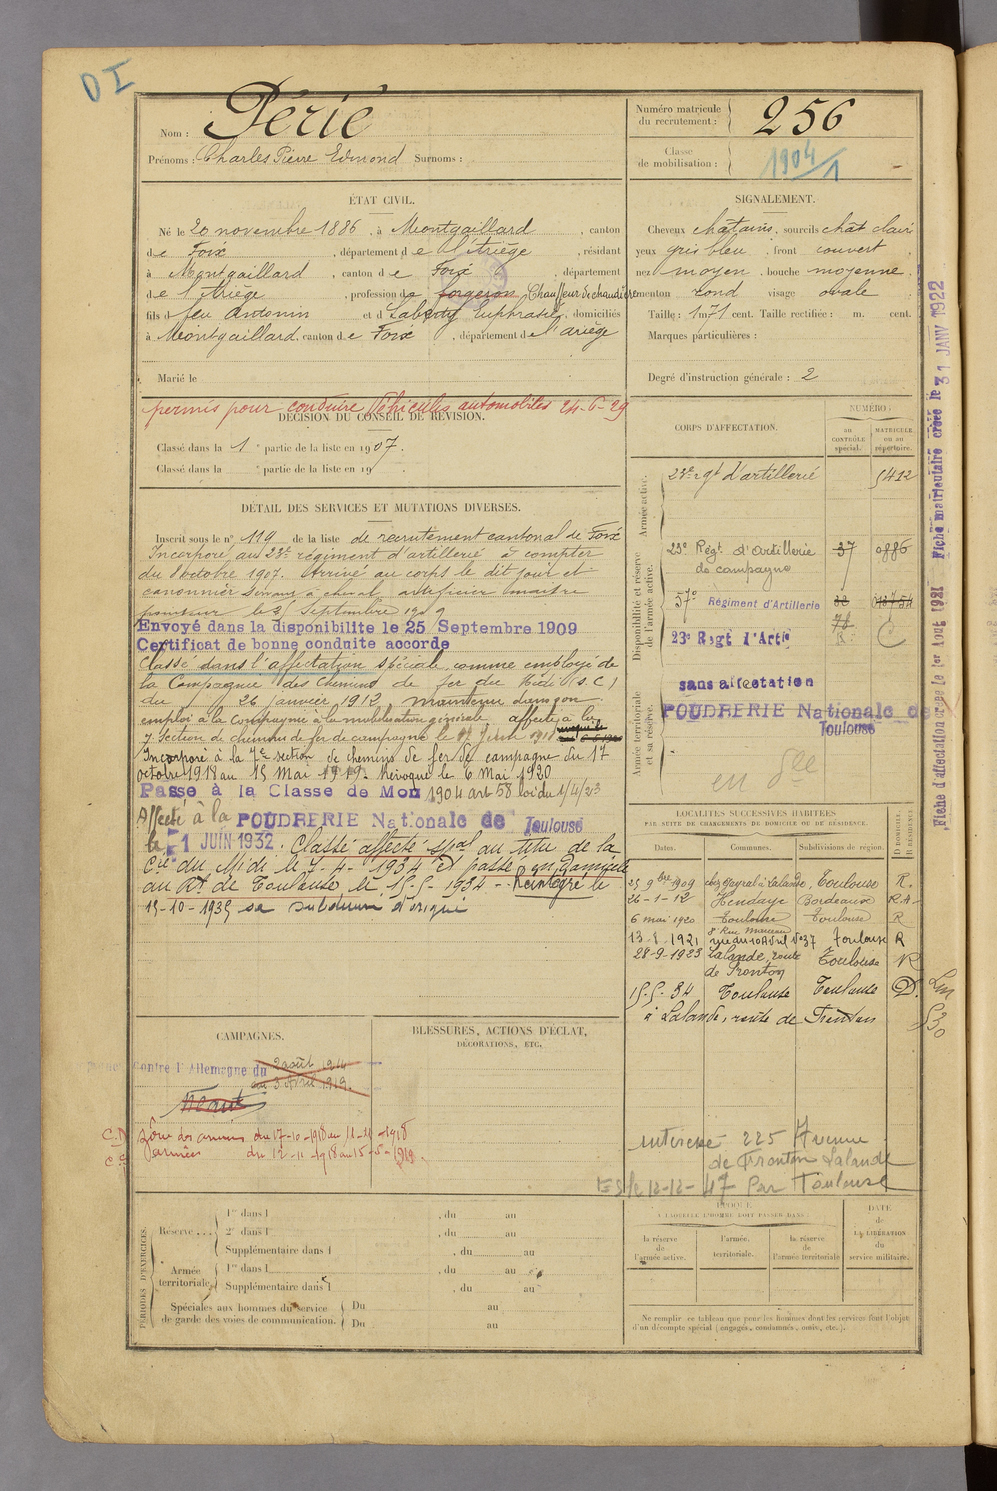 DI
Nom : Périé
Prénoms : Charles Pierre Edmond Surnoms :
Numéro matricule du recrutement : 256
Classe de mobilisation : 1904/1
ÉTAT CIVIL.
Né le 20 novembre 1886, à Montgaillard, canton
de Foix, département de l'Ariège, résidant
à Montgaillard, canton de Foix, département
de l'Ariège, profession de forgeron Chauffeur de chaudière
fils d feu Antonin et d Euphrasie, domiciliés
à Montgaillard, canton de Foix, département de l'Ariège
Marié le
SIGNALEMENT.
Cheveux châtains, sourcils chât clairs
yeux gris bleu, front couvert
nez moyen, bouche moyenne,
menton rond visage ovale
Taille : 1m 71 cent. Taille rectifiée : m. cent.
Marques particulières :
Degré d'instruction générale : 2
permis pour conduire Véhicules automobiles 24-6-29
DÉCISION DU CONSEIL DE RÉVISION.
Classé dans la 1e partie de la liste en 1907.
Classé dans la e partie de la liste en 19
DÉTAIL DES SERVICES ET MUTATIONS DIVERSES.
Inscrit sous le n° 119 de la liste de recrutement cantonal de Foix
Incorporé au 23e régiment d'artillerie à compter
du 8 octobre 1907. Arrivé au corps le dit jour et
canonnier servant à cheval artificier maître
pointeur le 25 Septembre 1909
Envoyé dans la disponibilite le 25 Septembre 1909
Certificat de bonne conduite accorde
Classé dans l'affectation spéciale comme employé de
la Compagnie des Chemins de fer du Midi (S.C)
du 26 janvier 1912 maintenu dans son
emploi à la Compagnie à la mobilisation générale affecté à la
7 Section de chemins de fer de campagne le
Incorporé à la 7e section de chemins de fer de campagne du 17
octobre 1918 au 15 Mai 1919. Révoqué le 6 Mai 1920
Passé à la Classe de Mon 1904 art 58 loi du 1/4/23
Affecté à la POUDRERIE Nationale de Toulouse
le 1 JUIN 1932. Classé affecté spal au titre de la
Cie du Midi le 7-4-1934 et passé en domicile
au Rt de Toulouse le 15-5-1934 - Réintégré le
15-10-1935 sa subdivon d'origine
CORPS D'AFFECTATION.
NUMÉRO :
AU CONTRÔLE spécial.
MATRICULE ou au répertoire.
Armée active.
23e rgt d'artillerie 5412
Disponibilité et réserve de l'armée active.
23e Régt d'Artillerie de campagne 37 0886
57e Régiment d'Artillerie
23e Regt d'Artie
Armée territoriale et sa réserve.
sans affectation
POUDRERIE Nationale de
Toulouse
Fiche d'affectation créée le 1er Aout 1921 Fiche matriculaire créée le 31 JANV 1922
LOCALITÉS SUCCESSIVES HABITÉES
PAR SUITE DE CHANGEMENTS DE DOMICILE OU DE RÉSIDENCE.
Dates. Communes. Subdivisions de région. D DOMICILE. R RÉSIDENCE.
25 9bre 1909 chez Gayral à Lalande, Toulouse R.
26-1-12 Hendaye Bordeaux R.
6 mai 1920 Toulouse Toulouse R
8 Rue Marceau
13-8-1921 rue du 10 Avril N°37 Toulouse R
28-9-1923 Lalande, route de Fronton Toulouse R
15-5-34 Toulouse Toulouse D.
à Lalande, route de Fronton
530
CAMPAGNES.
BLESSURES, ACTIONS D'ÉCLAT,
DÉCORATIONS, ETC.
contre l'Allemagne du 2 août 1914
au 3 Avril 1919.
Néant
C.D zône des armées du 17-10-1918 au 11-11-1918
armées du 12-11-1918 au 15-5-1919.
intéressé 225 Avenue
de Fronton Lalande
le 12-12-47 par Toulouse
PÉRIODES D'EXERCICES.
Réserve...
1re dans l , du au
2e dans l , du au
Supplémentaire dans l , du au
Armée territoriale.
1re dans l , du au
Supplémentaire dans l , du au
Spéciales aux hommes du service de garde des voies de communication.
Du au
Du au
ÉPOQUE
À LAQUELLE L'HOMME DOIT PASSER DANS :
la réserve de l'armée active.
l'armée. territoriale.
la réserve de l'armée territoriale
DATE de LA LIBÉRATION du service militaire.
Ne remplir ce tableau que pour les hommes dont les services font l'objet
d'un décompte spécial (engagés, condamnés, omis, etc.).